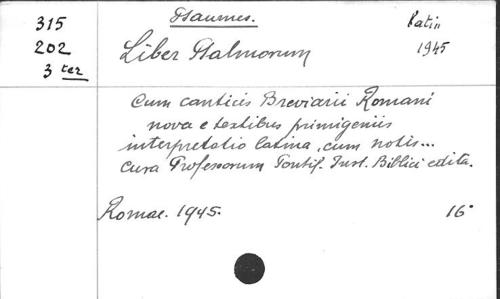 315
202
3 ter
Psaumes.
Latin
1945
Liber Psalmorum
Cum canticis Breviarii Romani
nova e textibus primigeniis
interpretatio latina, cum notis...
cura Professorum Pontif. Inst. Biblici edita.
Romae. 1945.
16°